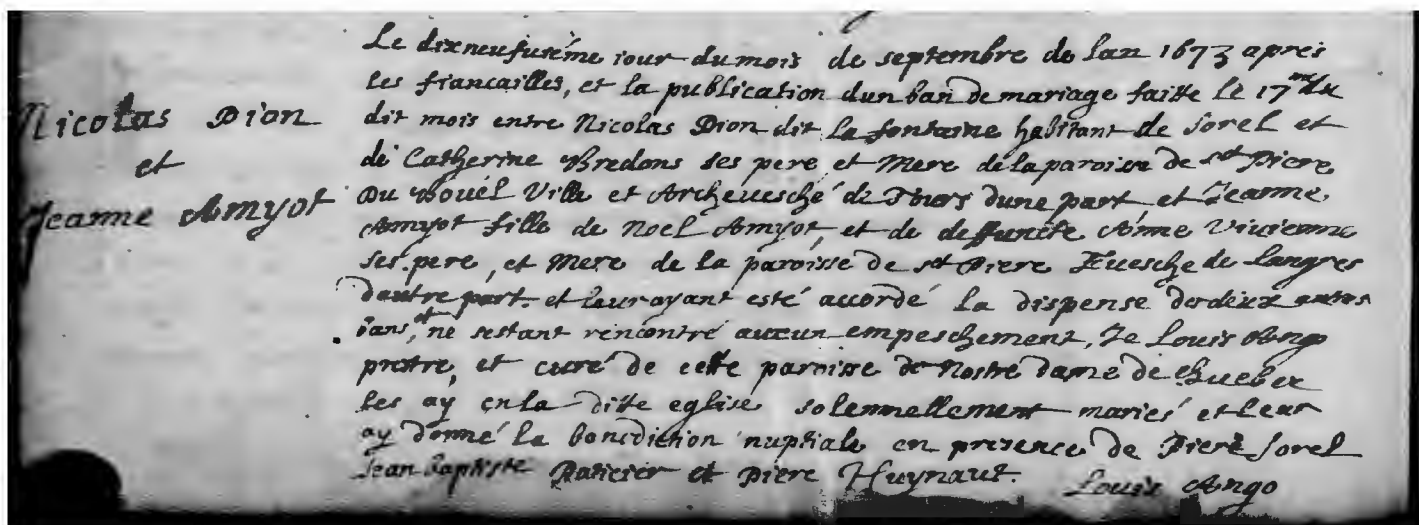 Nicolas Pion
et
Jeanne Amyot
Le dixneufuiéme iour du mois de septembre de lan 1673 apres
les fiancailles, et la publication dun ban de mariage faitte le 17me du
dit mois entre Nicolas Pion dit la fontaine habitant de Sorel et
de Catherine Bredons ses pere et Mere de la paroisse de st Piere
Du Ville et Archeuesché de Tours dune part et Jeanne
Amyot fille de Noel Amyot, et de deffuncte Anne Viuienne
ses pere, et Mere de la paroisse de st Piere Euesche de Langres
dautre part. et leur ayant esté accordé la dispense de deux autres
bans, et ne sestant rencontré aucun empeschement, Je Louis Ango
prestre, et curé de cette paroisse de Nostre dame de Quebex
les ay en la ditte eglise solemnellement mariés et leur
ay donné la benediction nuptiale en presence de Piere Sorel
Jean baptiste et Piere Huynaut. Louis Ango